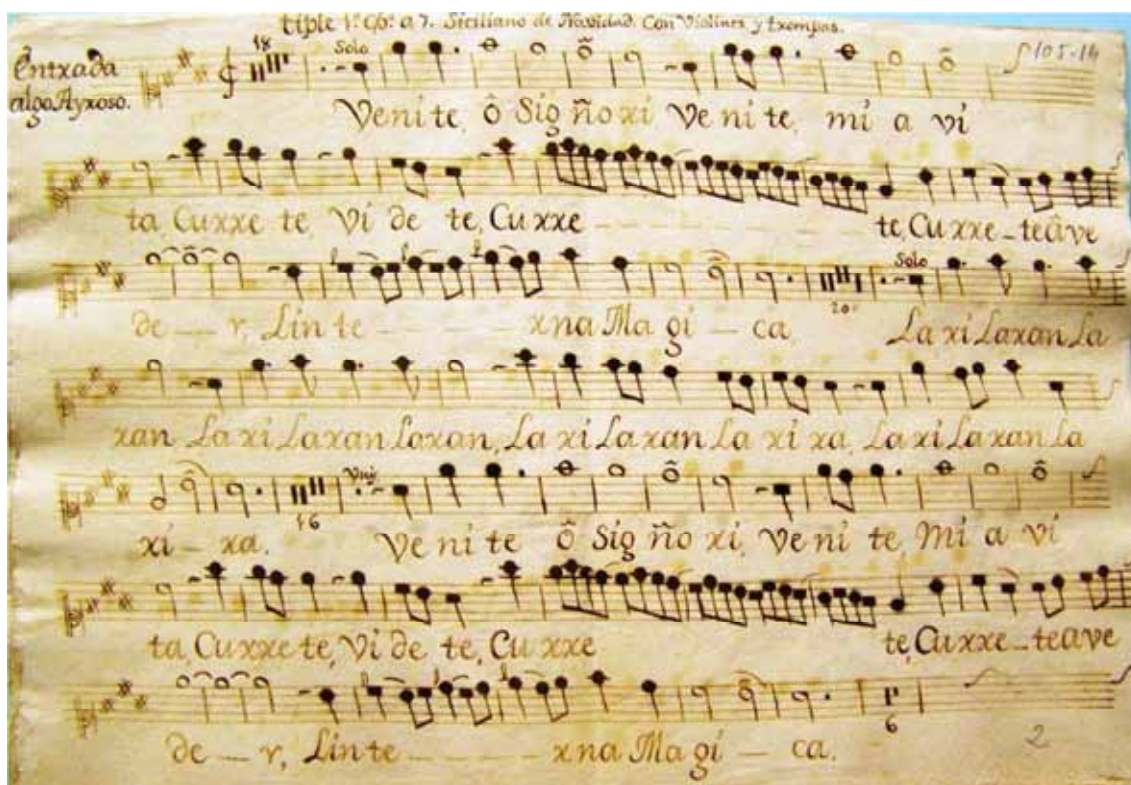 tiple 1º Cº. a 7. Siciliano de Navidad. Con Violines y trompas.
Entrada
algo Ayroso.
18
Solo
105-14
Venite, ô Sig ño ri Ve ni te, mi a vi
ta, Curre te, Vi de te, Cu rre - - - - - - te, Cu rre - te â ve
20
Solo
de - - r, Lin te - - - - - rna Ma gi - ca La ri La ran La
ran La ri La ran La ran, La ri La ran La ri ra, La ri La ran La
16
ri - ra. Ve ni te ô Sig ño ri, Ve ni te, Mi a vi
ta, Cu rre te, Vi de te, Cu rre te, Cu rre - te a ve
6
2
de - - r, Lin te - - - - rna Ma gi - ca.